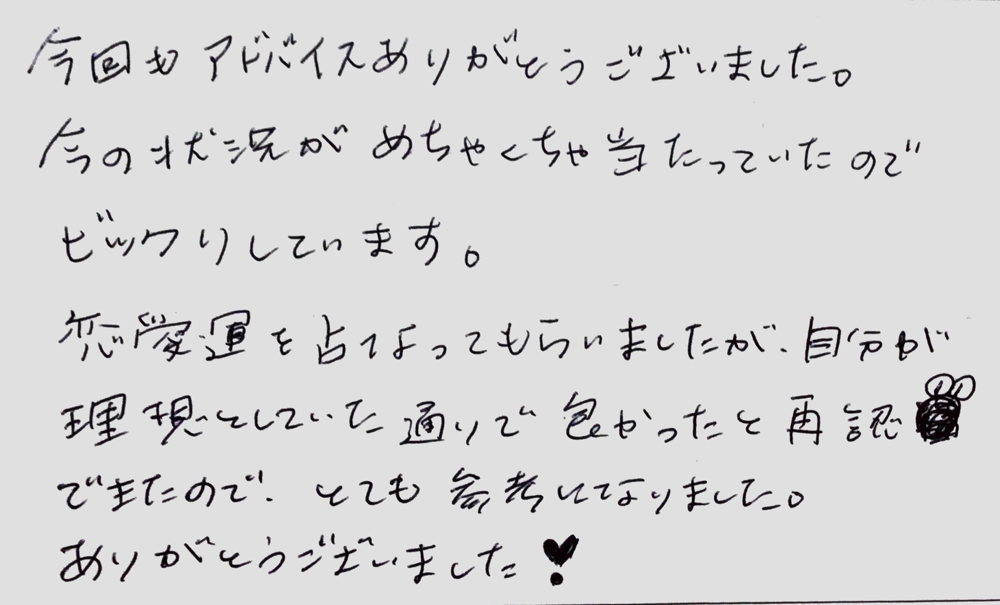 今回もアドバイスありがとうございました。
今の状況がめちゃくちゃ当たっていたので
ビックリしています。
恋愛運を占なってもらいましたが、自分が
理想としていた通りで良かったと再認
できたので、とても参考になりました。
ありがとうございました❣